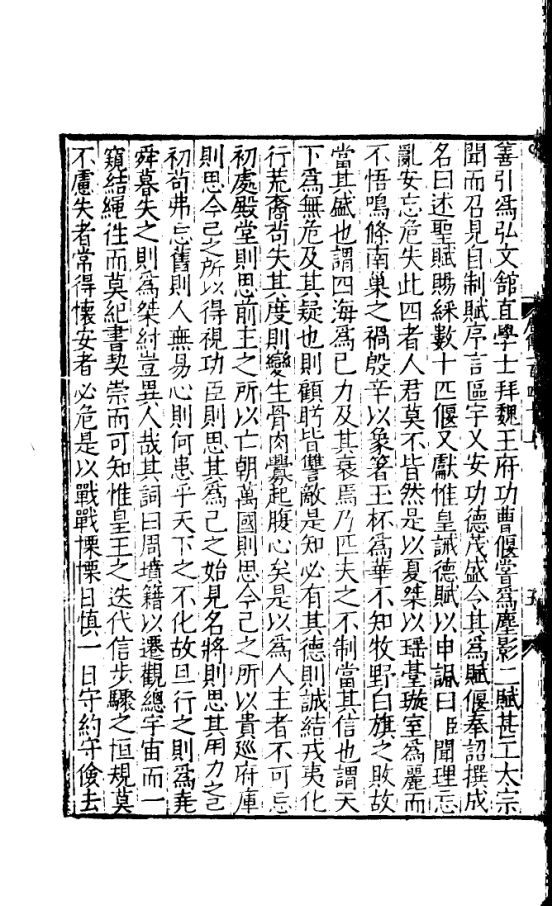 善引爲弘文館直學士拜魏王府功曹偃嘗爲塵影二賦甚工太宗
聞而召見自制賦序言區宇乂安功德茂盛令其爲賦偃奉詔撰成
名曰述聖賦賜綵數十匹偃又獻惟皇誡德賦以申諷曰臣聞理忘
亂安忘危失此四者人君莫不皆然是以夏桀以瑶臺璇室爲麗而
不悟鳴條南巢之禍殷辛以象箸玉杯爲華不知牧野白旗之敗故
當其盛也謂四海爲己力及其衰焉乃匹夫之不制當其信也謂天
下爲無危及其疑也則顧眄皆讐敵是知必有其德則誠結戎夷化
行荒裔茍失其度則變生骨肉釁起腹心矣是以爲人主者不可忘
初處殿堂則思前王之所以亡朝萬國則思今己之所以貴廵府庫
則思今己之所以得視功臣則思其爲己之始見名將則思其用力之
初茍弗忘舊則人無易心則何患乎天下之不化故旦行之則爲堯
舜暮失之則爲桀紂豈異人哉其詞曰周墳籍以遷觀總宇宙而一
窺結繩徃而莫紀書契崇而可知惟皇王之迭代信步驟之恒規莫
不慮失者常得懷安者必危是以戰戰慄慄日慎一日守約守儉去